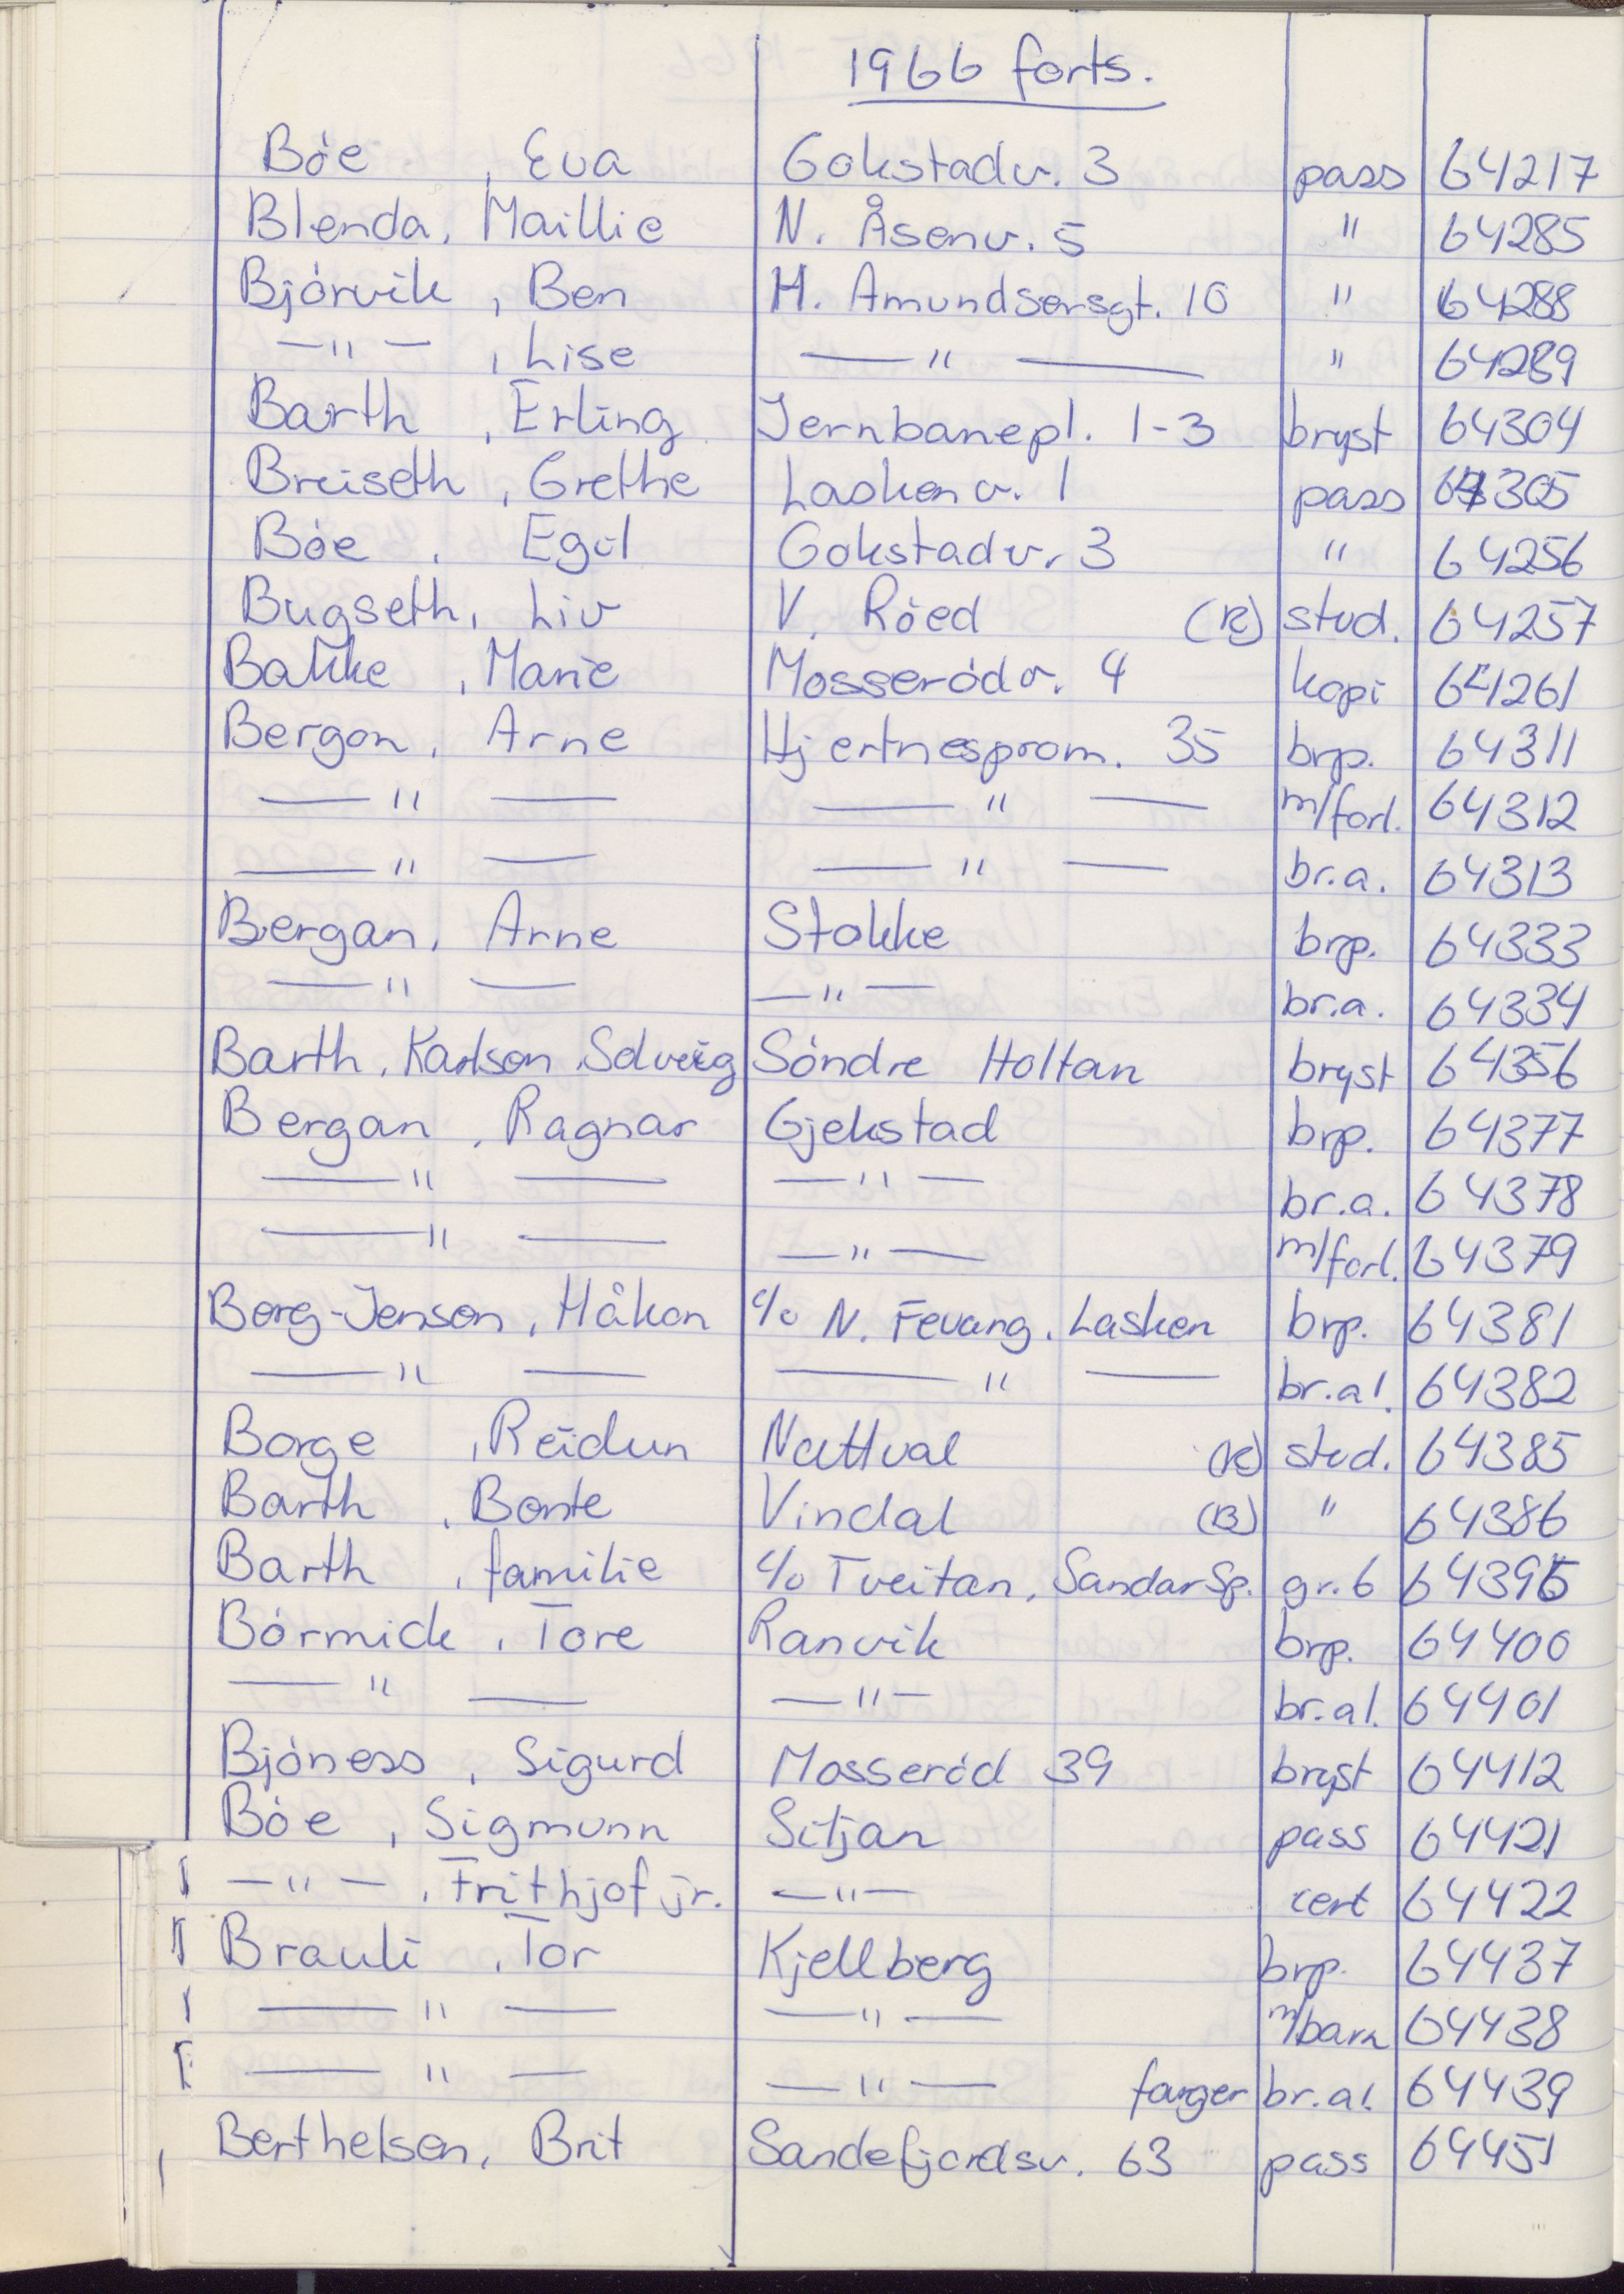 1966 forts.
Bóe , Eva Gokstadv. 3 pass 64217
Blenda, Maillie N. Åsenv. 5 " 64285
Bjórvik , Ben H. Amundsensgt. 10 " 64288
— " — , Lise — " — " 64289
Barth , Erling Jernbanepl. 1-3 bryst 64304
Breiseth , Grethe Lasken v. 1 pass 64305
Bóe , Egil Gokstadv. 3 " 64256
Bugseth, Liv V. Róed (K) stud. 64257
Bakke , Marie Mosseródv. 4 kopi 64261
Bergan, Arne Hjertnesprom. 35 brp. 64311
— " — — " — m/forl. 64312
— " — — " — br.a. 64313
Bergan, Arne Stokke brp. 64333
— " — — " — br.a. 64334
Barth, Karlsen, Solveig Sóndre Holtan bryst 64356
Bergan , Ragnar Gjekstad brp. 64377
— " — — " — br.a. 64378
— " — — " — m/forl. 64379
Borg-Jensen , Håkon c/o N. Fevang, Lasken brp. 64381
— " — — " — br.al. 64382
Borge , Reidun Nattval (K) stud. 64385
Barth , Bente Vindal (B) " 64386
Barth , familie c/o Tveitan, Sandar Sp. gr. 6 64395
Bórmick , Tore Ranvik brp. 64400
— " — — " — br.al. 64401
Bjóness , Sigurd Mosseród 39 bryst 64412
Bóe , Sigmunn Sitjan pass 64421
— " — , Frithjof jr. — " — cert 64422
Brauti , Tor Kjellberg brp. 64437
— " — — " — m/barn 64438
— " — — " — farger br.al. 64439
Berthelsen, Brit Sandefjordsv. 63 pass 64451